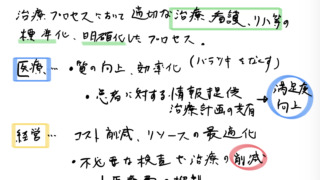 治療プロセスにおいて適切な治療、看護、リハ等の
標準化、明確化したプロセス。
医療… ・質の向上、効率化（バラツキをなくす）
・患者に対する情報提供
治療計画の共有 → 満足度
向上
経営… コスト削減、リソースの最適化
・不必要な検査や治療の削減